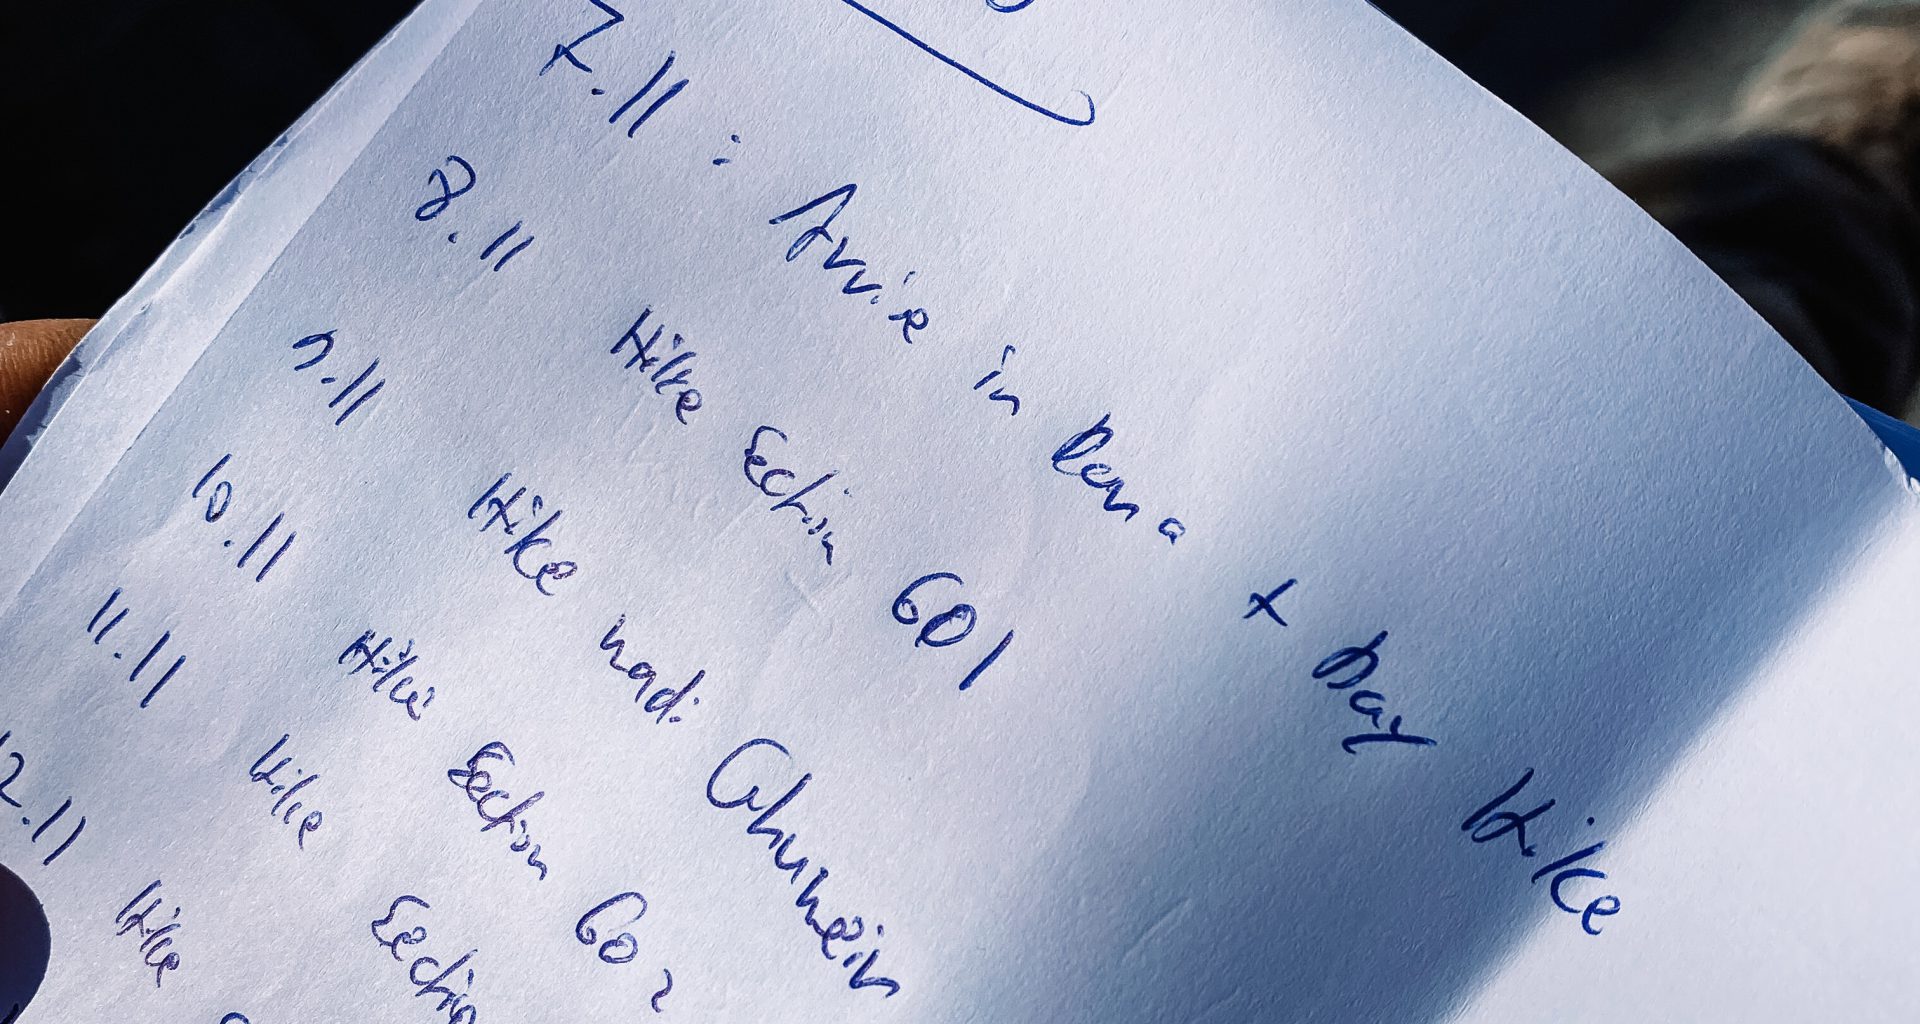 7.11 : Arrive in Dana + Day Hike
8.11 Hike Section 601
9.11 Hike Wadi Ghuweir
10.11 Hike Section 602
11.11 Hike Section
2.11 Hike